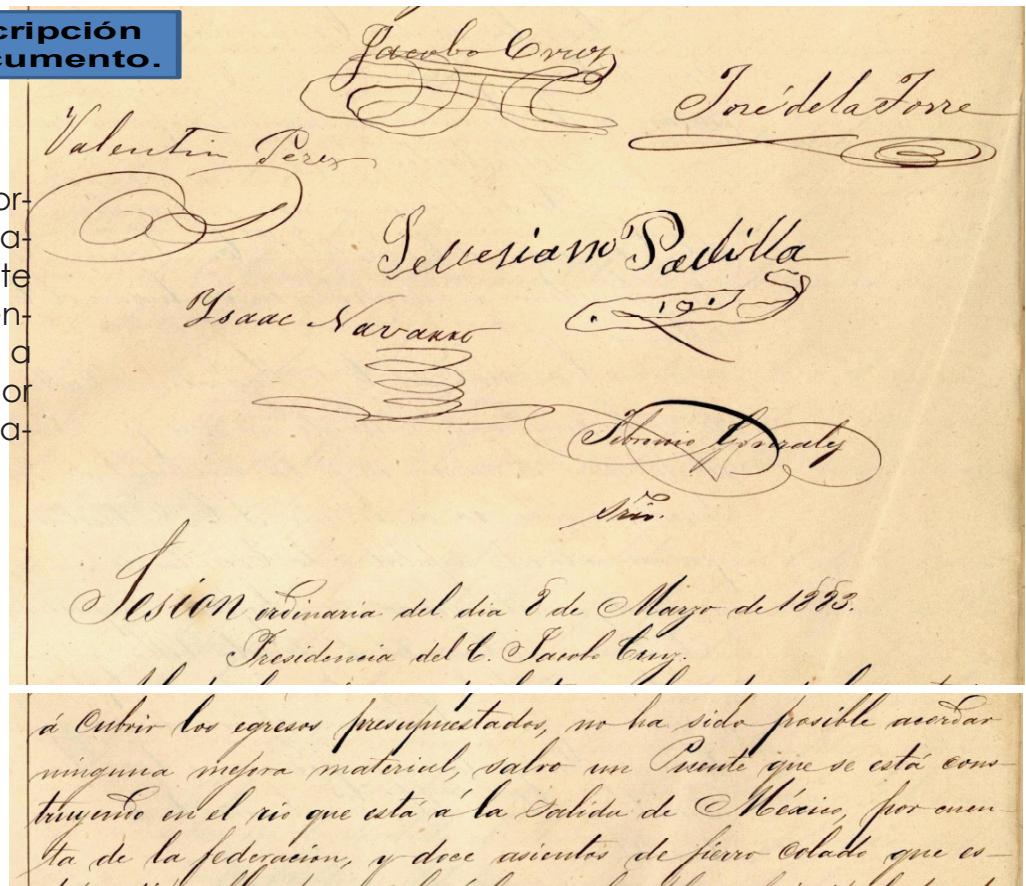 cripción
cumento.
or-
a-
te
en-
a
or
a-
Jacobo Cruz
José de la Torre
Valentin Perez
Padilla
Isaac Navarro
Gonzalez
Srio.
Sesion ordinaria del dia 8 de Marzo de 1883.
Presidencia del C. Jacobo Cruz.
á cubrir los egresos presupuestados, no ha sido posible acordar
ninguna mejora material, salvo un Puente que se está cons-
truyendo en el rio que está á la salida de México, por cuen-
ta de la federacion, y doce asientos de fierro colado que es-